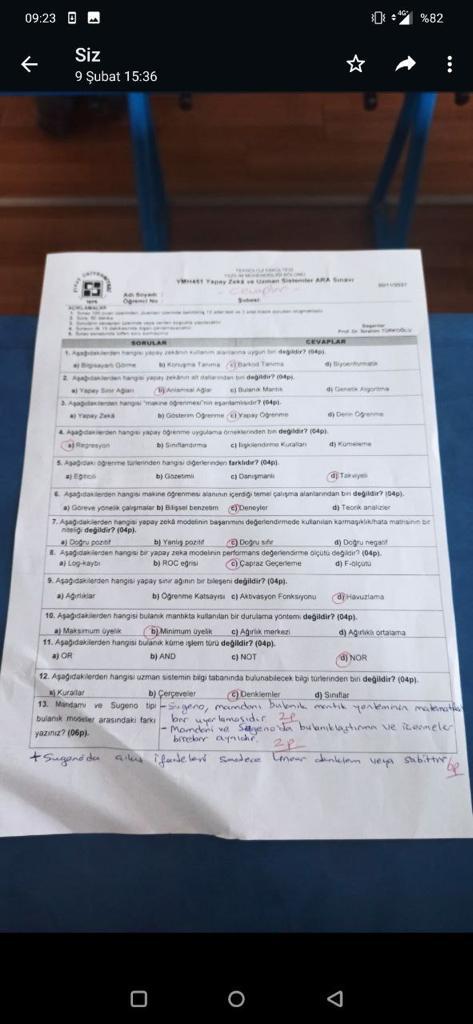 09:23
4G
%82
Siz
9 Şubat 15:36
TEKNOLOJİ FAKÜLTESİ
YAZILIM MÜHENDİSLİĞİ BÖLÜMÜ
YMH461 Yapay Zekâ ve Uzman Sistemler ARA Sınavı
Cevaplar
Adı Soyadı :
Öğrenci No :
Şubesi:
AÇIKLAMALAR
SORULAR
CEVAPLAR
1. Aşağıdakilerden hangisi yapay zekânın kullanım alanlarına uygun biri değildir? (04p).
a) Bilgisayarlı Görme b) Konuşma Tanıma c) Barkod Tanıma d) Biyoenformatik
2. Aşağıdakilerden hangisi yapay zekânın alt dallarından biri değildir? (04p).
a) Yapay Sinir Ağları b) Anlamsal Ağlar c) Bulanık Mantık d) Genetik Algoritma
3. Aşağıdakilerden hangisi "makine öğrenmesi"nin eşanlamlısıdır? (04p).
a) Yapay Zekâ b) Gösterim Öğrenme c) Yapay Öğrenme d) Derin Öğrenme
4. Aşağıdakilerden hangisi yapay öğrenme uygulama örneklerinden biri değildir? (04p).
a) Regresyon b) Sınıflandırma c) İlişkilendirme Kuralları d) Kümeleme
5. Aşağıdaki öğrenme türlerinden hangisi diğerlerinden farklıdır? (04p).
a) Eğiticili b) Gözetimli c) Danışmanlı d) Takviyeli
6. Aşağıdakilerden hangisi makine öğrenmesi alanının içerdiği temel çalışma alanlarından biri değildir? (04p).
a) Göreve yönelik çalışmalar b) Bilişsel benzetim c) Deneyler d) Teorik analizler
7. Aşağıdakilerden hangisi yapay zekâ modelinin başarımını değerlendirmede kullanılan karmaşıklık/hata matrisinin bir
niteliği değildir? (04p).
a) Doğru pozitif b) Yanlış pozitif c) Doğru sıfır d) Doğru negatif
8. Aşağıdakilerden hangisi bir yapay zeka modelinin performans değerlendirme ölçütü değildir? (04p).
a) Log-kaybı b) ROC eğrisi c) Çapraz Geçerleme d) F-ölçütü
9. Aşağıdakilerden hangisi yapay sinir ağının bir bileşeni değildir? (04p).
a) Ağırlıklar b) Öğrenme Katsayısı c) Aktivasyon Fonksiyonu d) Havuzlama
10. Aşağıdakilerden hangisi bulanık mantıkta kullanılan bir durulama yöntemi değildir? (04p).
a) Maksimum üyelik b) Minimum üyelik c) Ağırlık merkezi d) Ağırlıklı ortalama
11. Aşağıdakilerden hangisi bulanık küme işlem türü değildir? (04p).
a) OR b) AND c) NOT d) NOR
12. Aşağıdakilerden hangisi uzman sistemin bilgi tabanında bulunabilecek bilgi türlerinden biri değildir? (04p).
a) Kurallar b) Çerçeveler c) Denklemler d) Sınıflar
13. Mamdami ve Sugeno tipi
bulanık modeller arasındaki farkı
yazınız? (06p).
- Sugeno, mamdani bulanık mantık yönteminin matematiksel
bir uyarlamasıdır. 2p
- Mamdani ve Sugeno'da bulanıklaştırma ve
birebir aynıdır. 2p
+ Sugano'da çıkış ifadeleri sadece linear denklem veya sabittir 6p